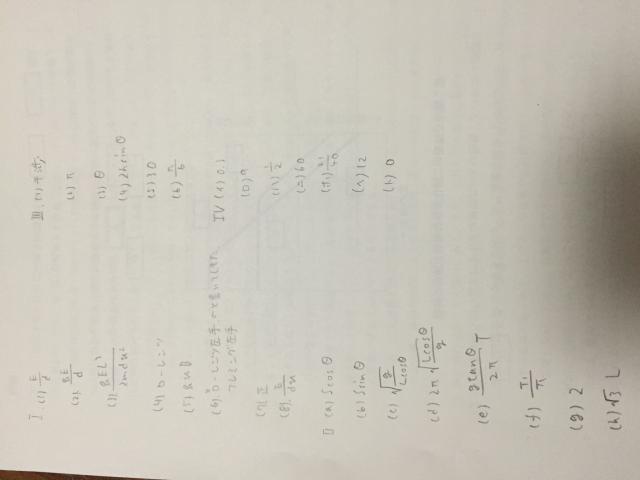 I. (1) E/d
(2) qE/d
(3) qEL²/2mdu²
(4) ローレンツ
(5) quB
(6) ローレンツ左手
フレミング左手
(7) 正
(8) E/du
II (a) S cosθ
(b) S sinθ
(c) √(g/Lcosθ)
(d) 2π√(Lcosθ/g)
(e) g tanθ/2π T
(f) T₁/π
(g) 2
(h) √3 L
III. (1) 干渉
(2) π
(3) θ
(4) 2h sinθ
(5) 30
(6) π/6
IV (イ) 0.1
(ロ) a
(ハ) 1/2
(ニ) 60
(ホ) 21/40
(ヘ) 12
(ト) 0